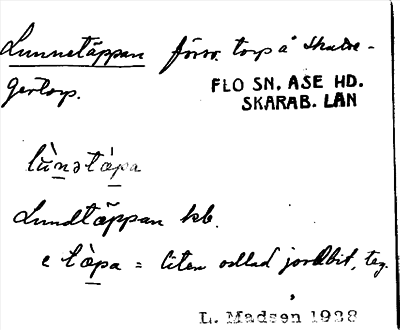 Lunnetäppan försv. torp å Skatte-
gertorp.
FLO SN. ÅSE HD.
SKARAB. LÄN
lùnətàpa
Lundtäppan kb.
e tàpa = liten odlad jordbit, teg.
L. Madsen 1928